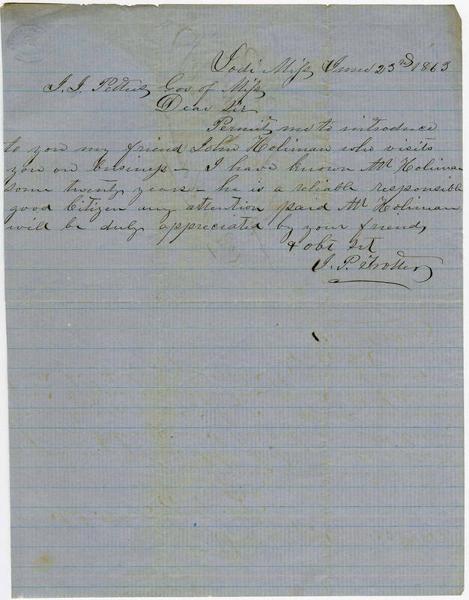 Lodi Miss June 23rd 1863
J. J. Pettus Gov of Miss
Dear Sir
Permit me to introduce
to you my friend John Holiman who visits
you on business – I have known Mr Holiman
some twenty years – he is a reliable responsible
good Citizen any attention paid Mr Holiman
will be duly appreciated by your friend,
& obt Svt
J. P. Trotter